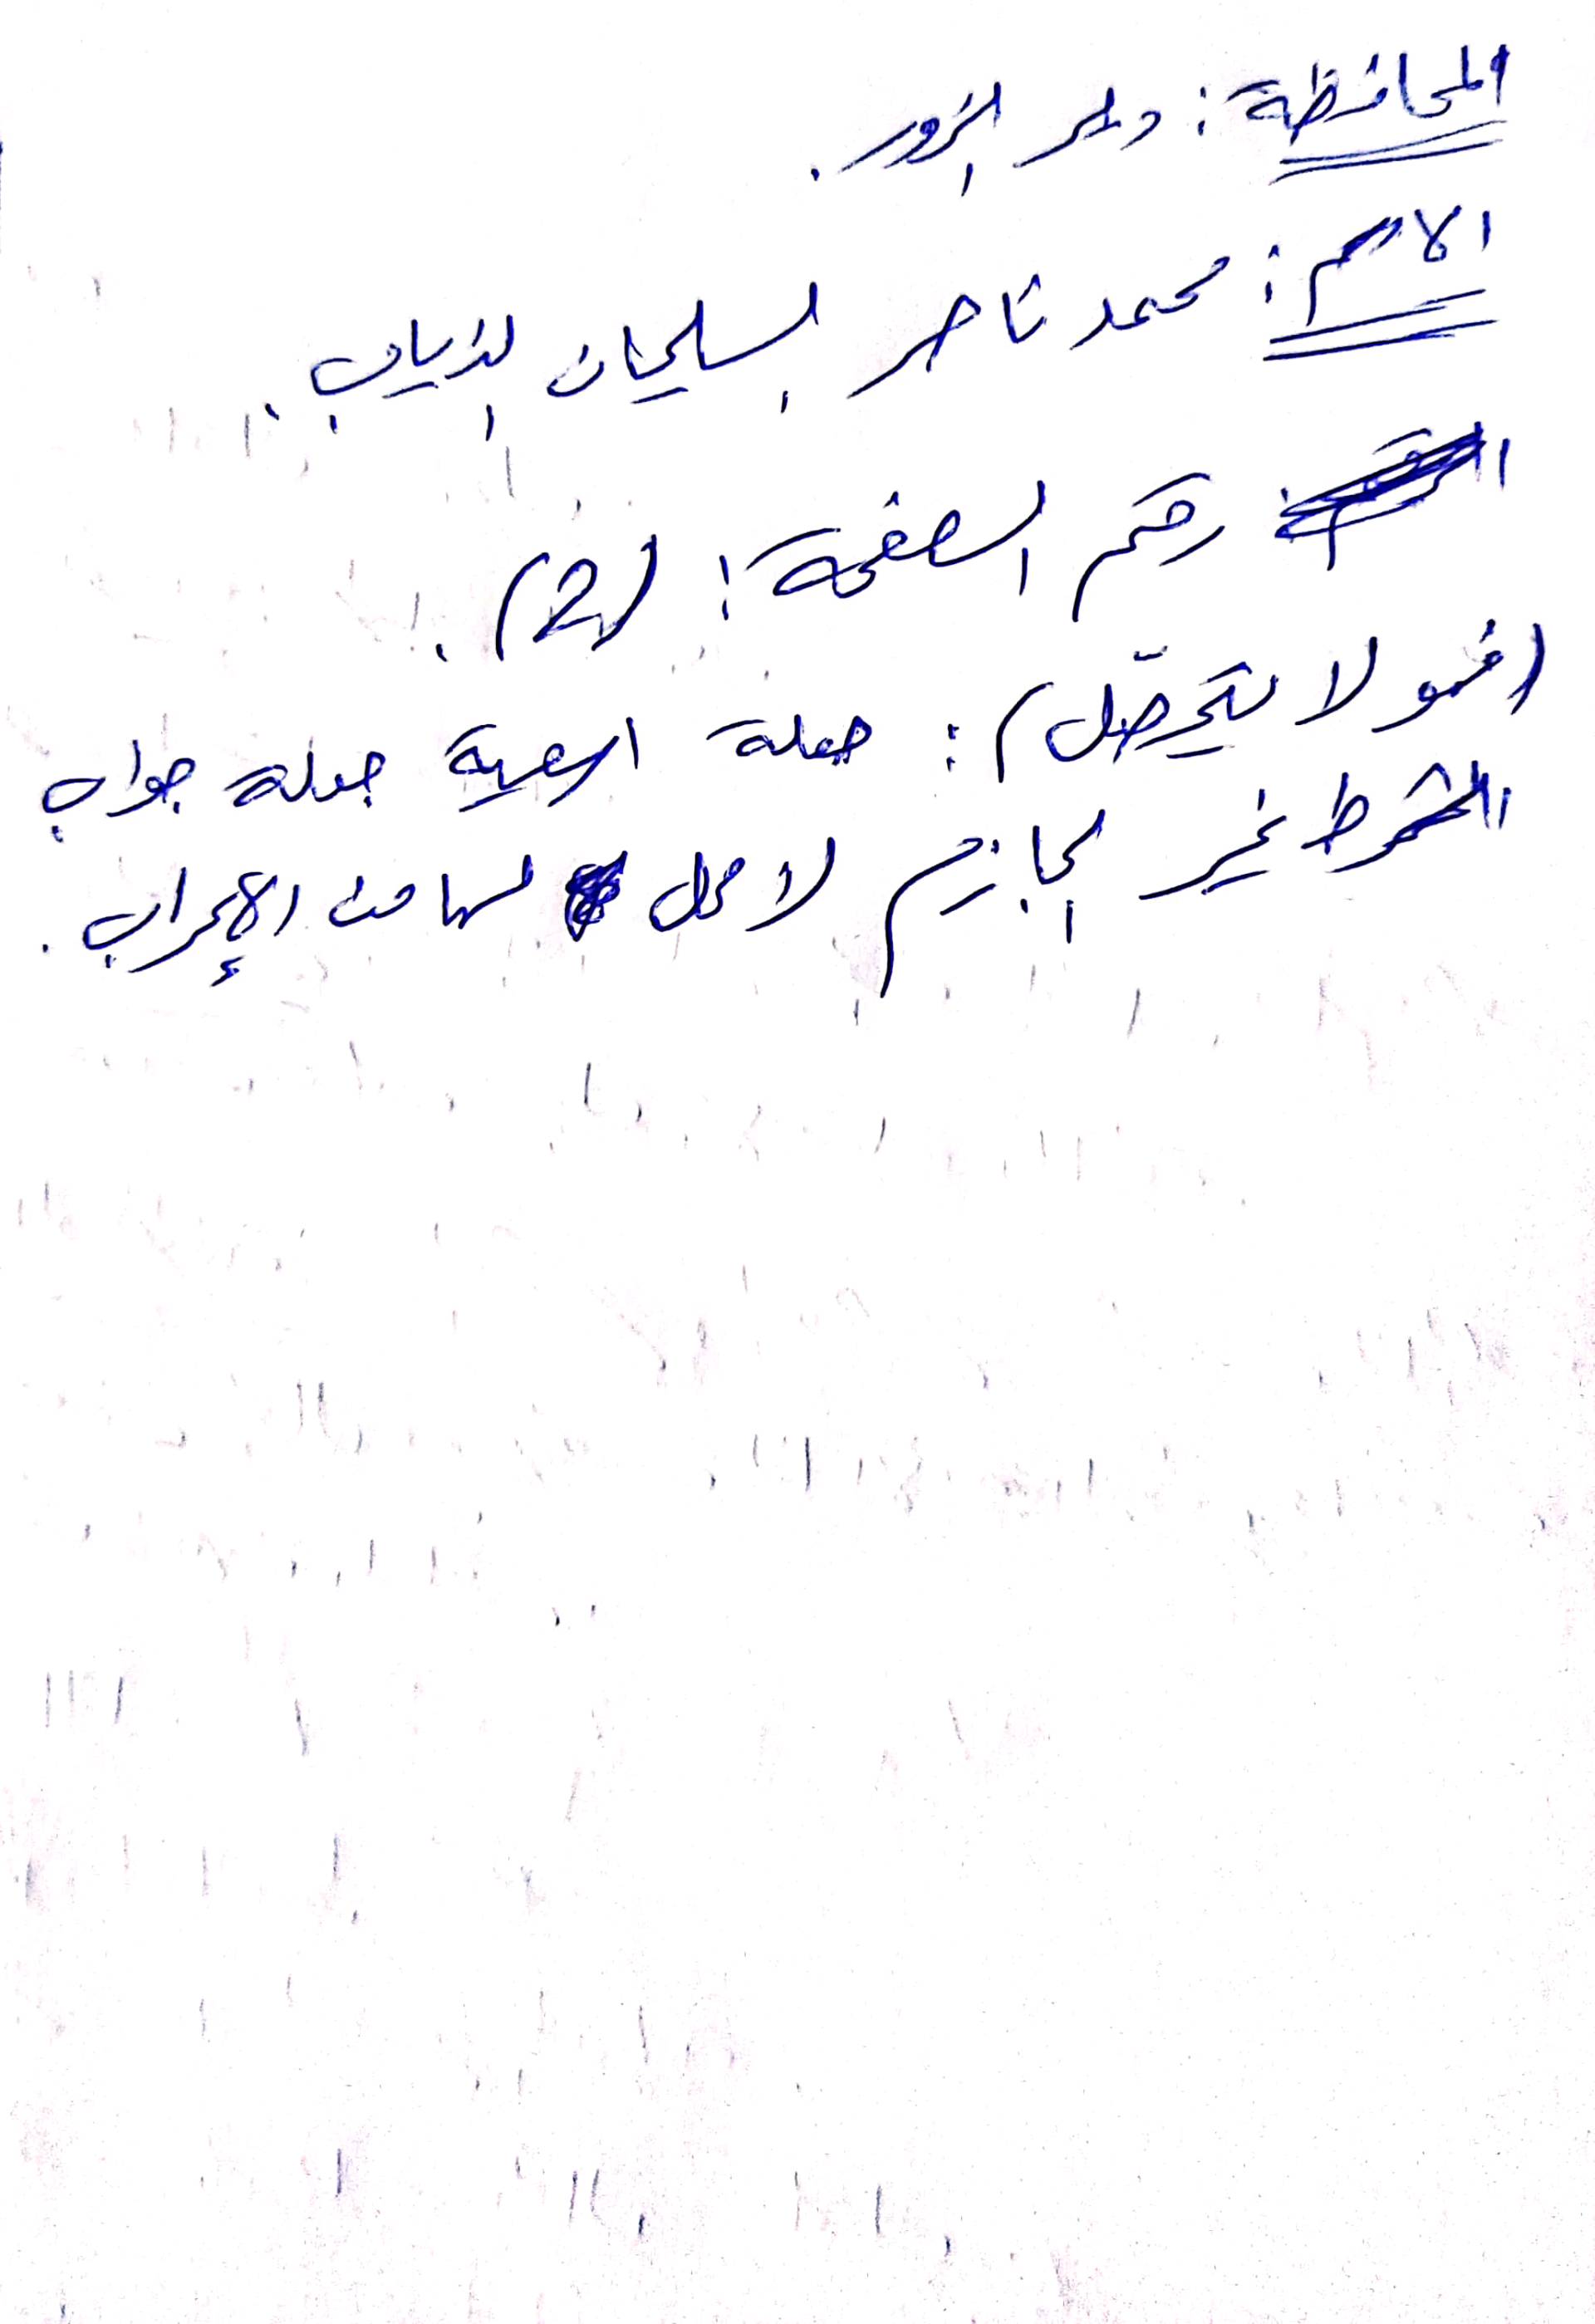 المحافظة: دير الزور.
الاسم: محمد ناصر السليمان الذياب.
رقم الصفحة: (2).
(فهو لا يتحصّل): جملة اسمية جملة جواب
الشرط غير الجازم لا محل لها من الإعراب.